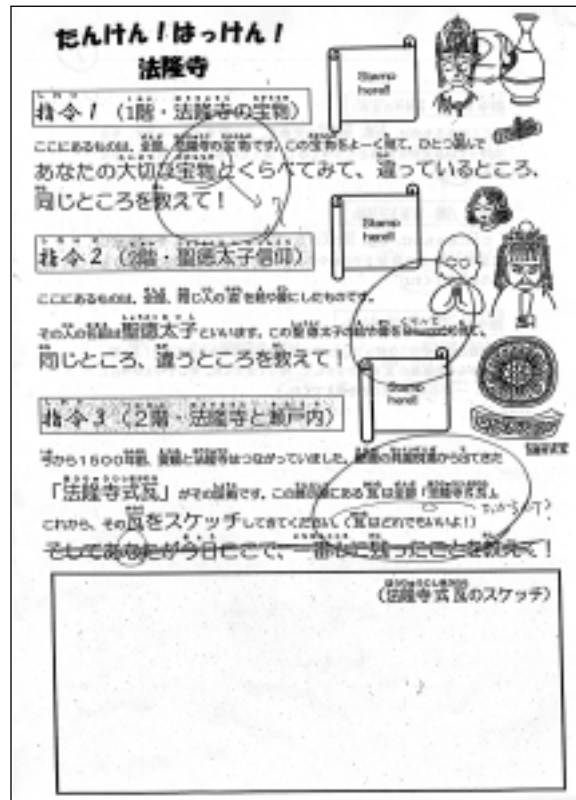 たんけん!はっけん!
法隆寺
Stamp here!!
指令1 (1階・法隆寺の宝物)
ここにあるものは、全部、法隆寺の宝物です。この宝物をよーく見て、ひとつ選んで
あなたの大切な宝物とくらべてみて、違っているところ、
同じところを教えて!
Stamp here!!
指令2 (2階・聖徳太子信仰)
ここにあるものは、全部、同じ人の姿を絵や像にしたものです。
その人の名前は聖徳太子といいます。この聖徳太子の絵や像を
同じところ、違うところを教えて!
Stamp here!!
指令3 (2階・法隆寺と瀬戸内)
今から1600年前、愛媛と法隆寺はつながっていました。
「法隆寺式瓦」がその証拠です。この展示室にある瓦は全部「法隆寺式瓦」。
これから、その瓦をスケッチしてきてください。(瓦はどれでもいいよ!)
そしてあなたが今日ここで、一番心に残ったことを教えて!
(法隆寺式瓦のスケッチ)